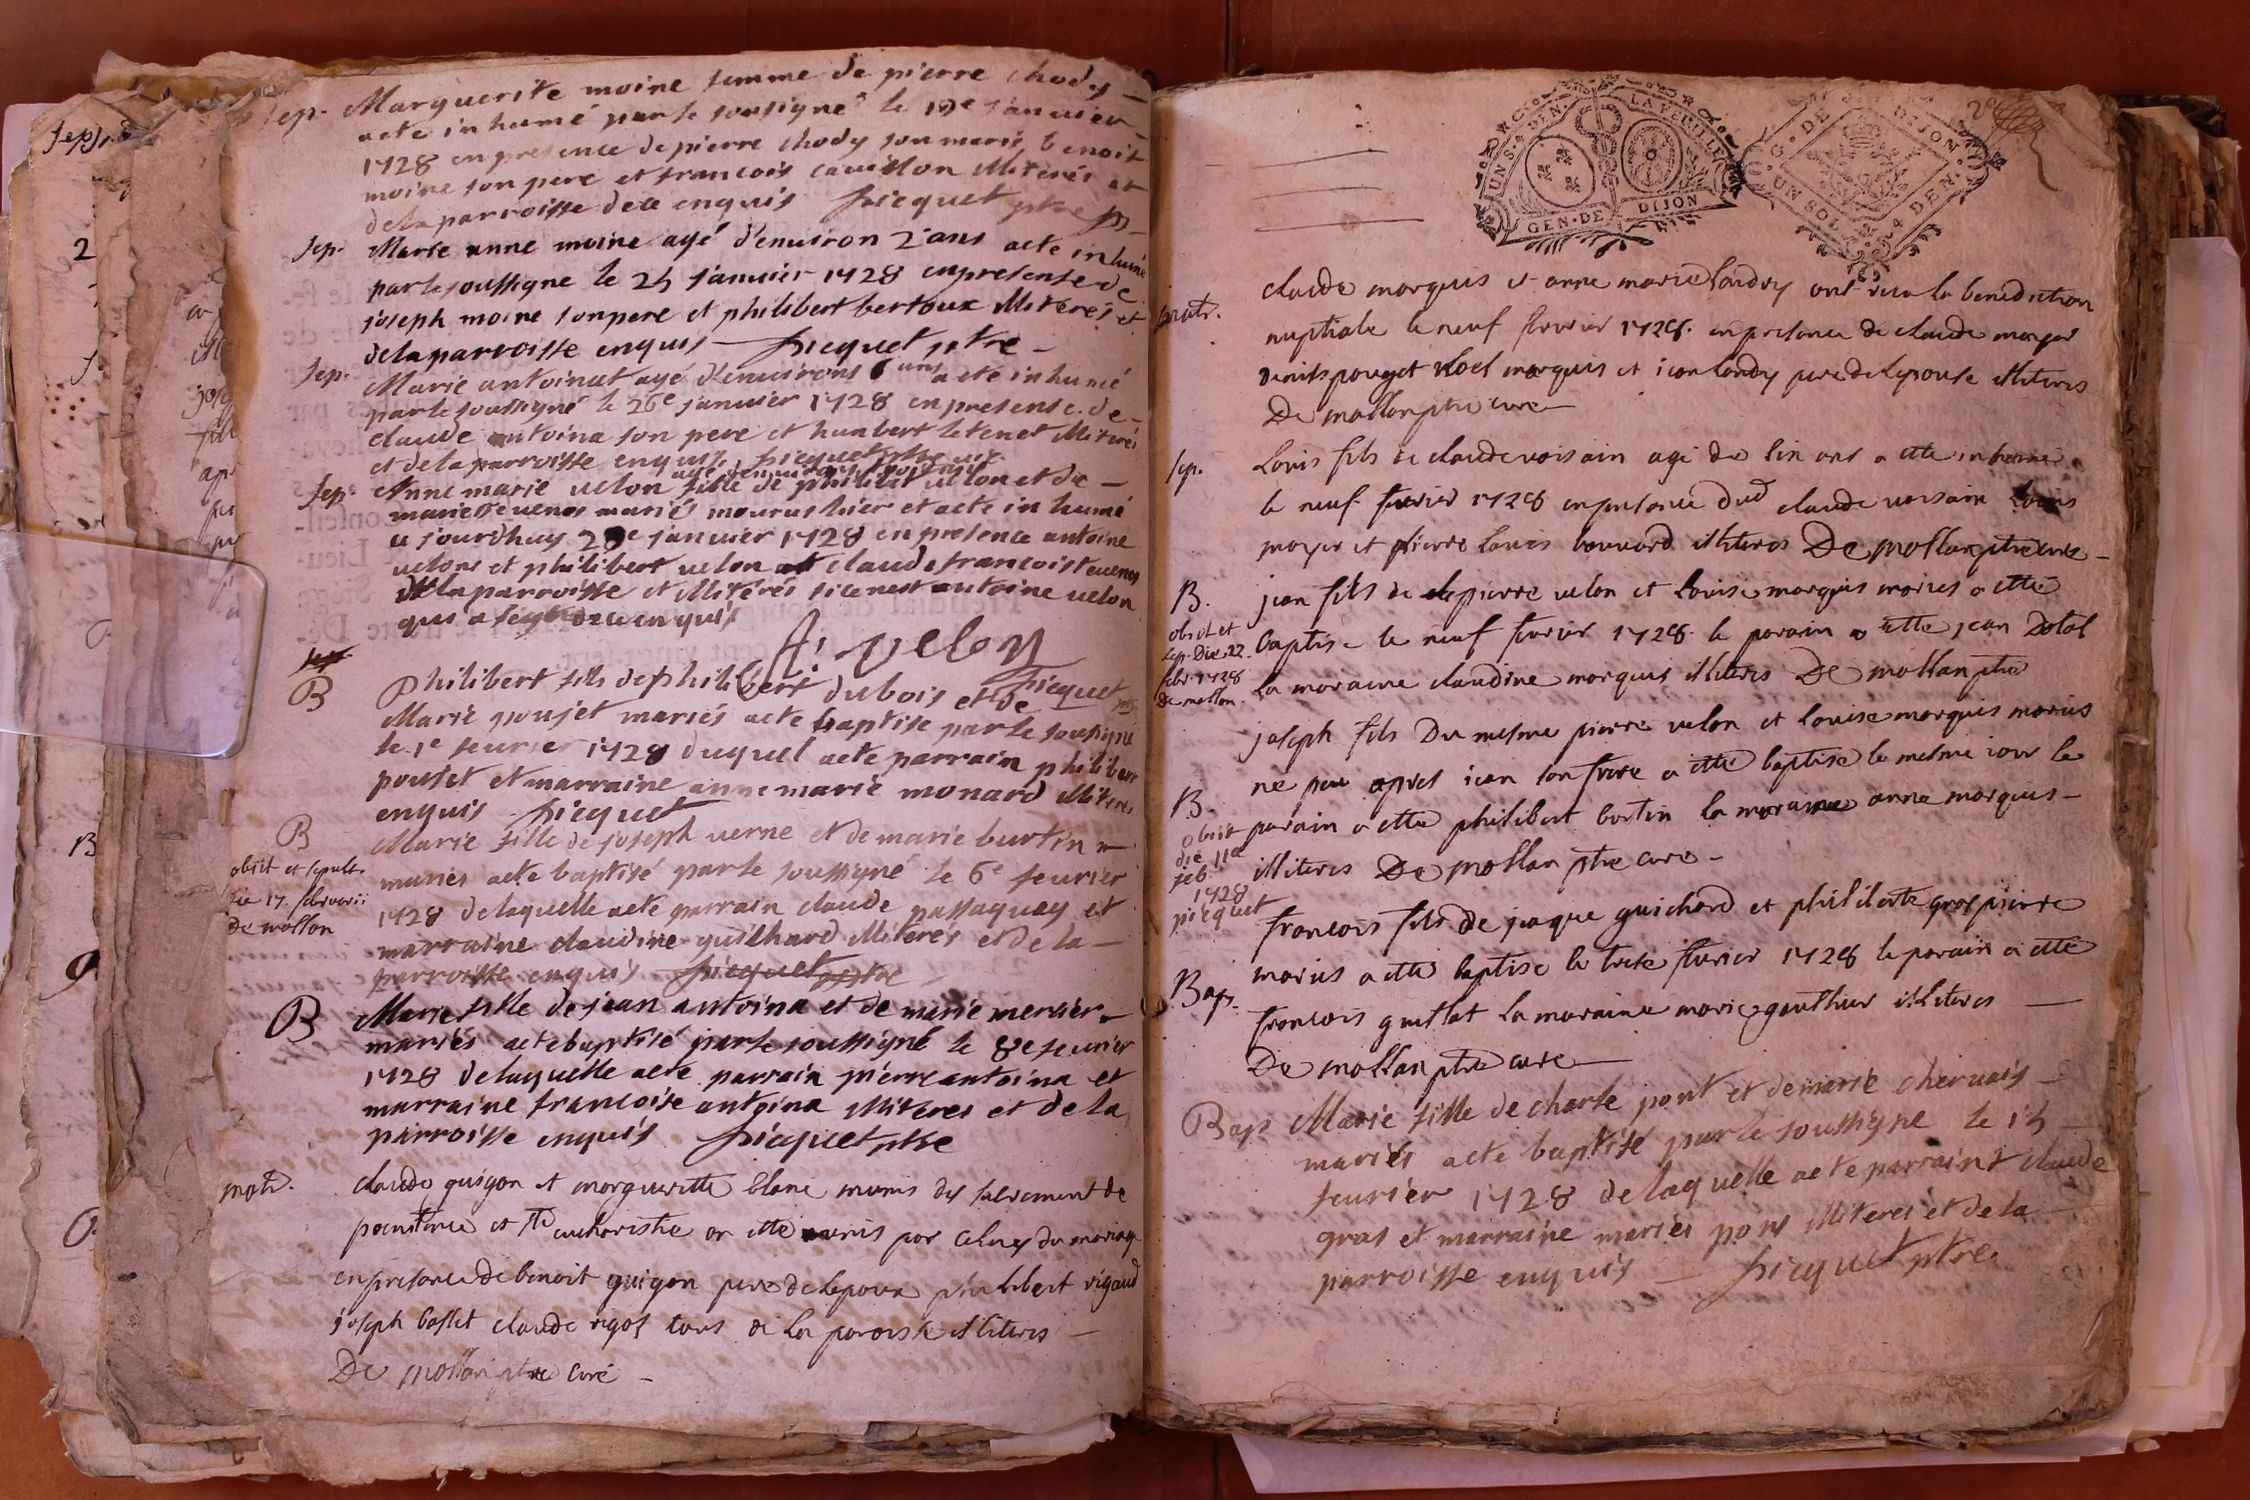 Sep. Marguerite moine femme de pierre chody
acte inhumé par le sousigné le 19e Januier
1728 en presence de pierre chody son marié, benoit
moine son pere et francois cauillon illiterés et
de la parroisse de ce enquis picquet ptre
Sep. Marie anne moine agé d'enuiron 2 ans acte inhumé
par le soussigne le 25 januier 1728 en presense de
joseph moine son pere et philibert bertoux illiterés et
de la parroisse enquis picquet ptre
Sep. Marie antoinat agé d'enuirons 6 ans acte inhumé
par le soussigné le 26e januier 1728 en presense de
claude antoina son pere et humbert letenet illiterés
et de la parroisse enquis picquet ptre
Sep. Anne marie uelon fille de philibert uelon et de
mariés mourus hier et acte inhumé
aujourdhuy januier 1728 en presence antoine
uelons et philibert uelon et claude francois teuenos
de la parroisse et illiterés sicenest antoine uelon
qui a signé de ce enquis
A. velon
picquet ptre
B Philibert fils de philibert dubois et de
Marie poujet mariés acte baptise par le soussigné
le 1e feurier 1728 duquel acte parrain philibert
poujet et marraine anne marie monard illiteres
enquis picquet
B Marie fille de joseph uerne et de marie burtin
mariés acte baptisé par le soussigné le 6e feurier
obiit et sepult.
die 17. februarii
de mollan
1728 de laquelle acte parrain claude passaquay et
marraine claudine guilhard illiterés et de la
parroisse enquis picquet ptre
B Marie fille de jean antoina et de marie mercier
mariés acte baptisé par le soussigné le 8e feurier
1728 de laquelle acte parrain pierre antoina et
marraine francoise antoina illiteres et de la
parroisse enquis picquet ptre
matr. claude guigon et margueritte blanc munis des sacrement de
poenitence et ste eucharistie on ette par celuy du mariage
en presence de benoit guigon pere de lepoux philibert rigaud
joseph basset claude rigos tous de la paroisse illiteres
De mollan ptre curé
GEN · DE DIJON
UN S · 4 DEN · LA FEUILLE
G · DE DIJON
UN SOL 4 DEN ·
matr. claude marquis et anne marie landry ont recu la benediction
nuptiale le neuf fevrier 1728. en presence de claude
denis pouget noel marquis et jean landry pere de lepouse illiteres
De mollan ptre cure
Sep. Louis fils de claude voisain agé de cin ans a ette inhumé
le neuf fevrier 1728 en presence dud claude voisain Louis
moyer et pierre louis bouuard illiteres De mollan ptre cure
B. jean fils de pierre velon et louise marquis mariés a etté
obiit et
sep. die 22
febr. 1728
de mollan.
baptisé le neuf fevrier 1728. le parain a ette jean Dolat
la maraine claudine marquis illiteres De mollan ptre
joseph fils du mesme pierre velon et louise marquis mariés
né peu apres jean son frere a etté baptisé le mesme jour le
B. parain a etté philibert bertin la maraine anne marquis
obiit
die 11a
feb.
1728
picquet
illiteres De mollan ptre cure
francois fils de jaque guichard et philiberte grospierre
Bap. mariés a etté baptisé le treise fevrier 1728 le parain a etté
francois guillot la maraine marie gauthier illiteres
De mollan ptre cure
Bap. Marie fille de charle pont et de marie cheruais
mariés acte baptisé par le soussigné le 15
feurier 1728 de laquelle acte parraint claude
gras et marraine maries pont illiteres et de la
parroisse enquis picquet ptre